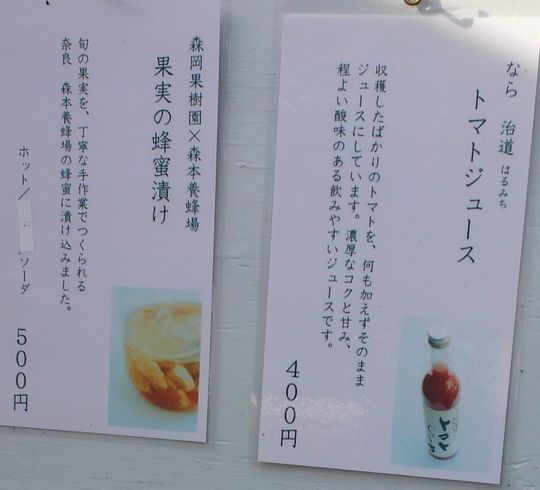 なら 治道 はるみち
トマトジュース
収穫したばかりのトマトを、何も加えずそのまま
ジュースにしています。濃厚なコクと甘み、
程よい酸味のある飲みやすいジュースです。
400円
トマト
森岡果樹園×森本養蜂場
果実の蜂蜜漬け
旬の果実を、丁寧な手作業でつくられる
奈良 森本養蜂場の蜂蜜に漬け込みました。
ホット/ソーダ
500円